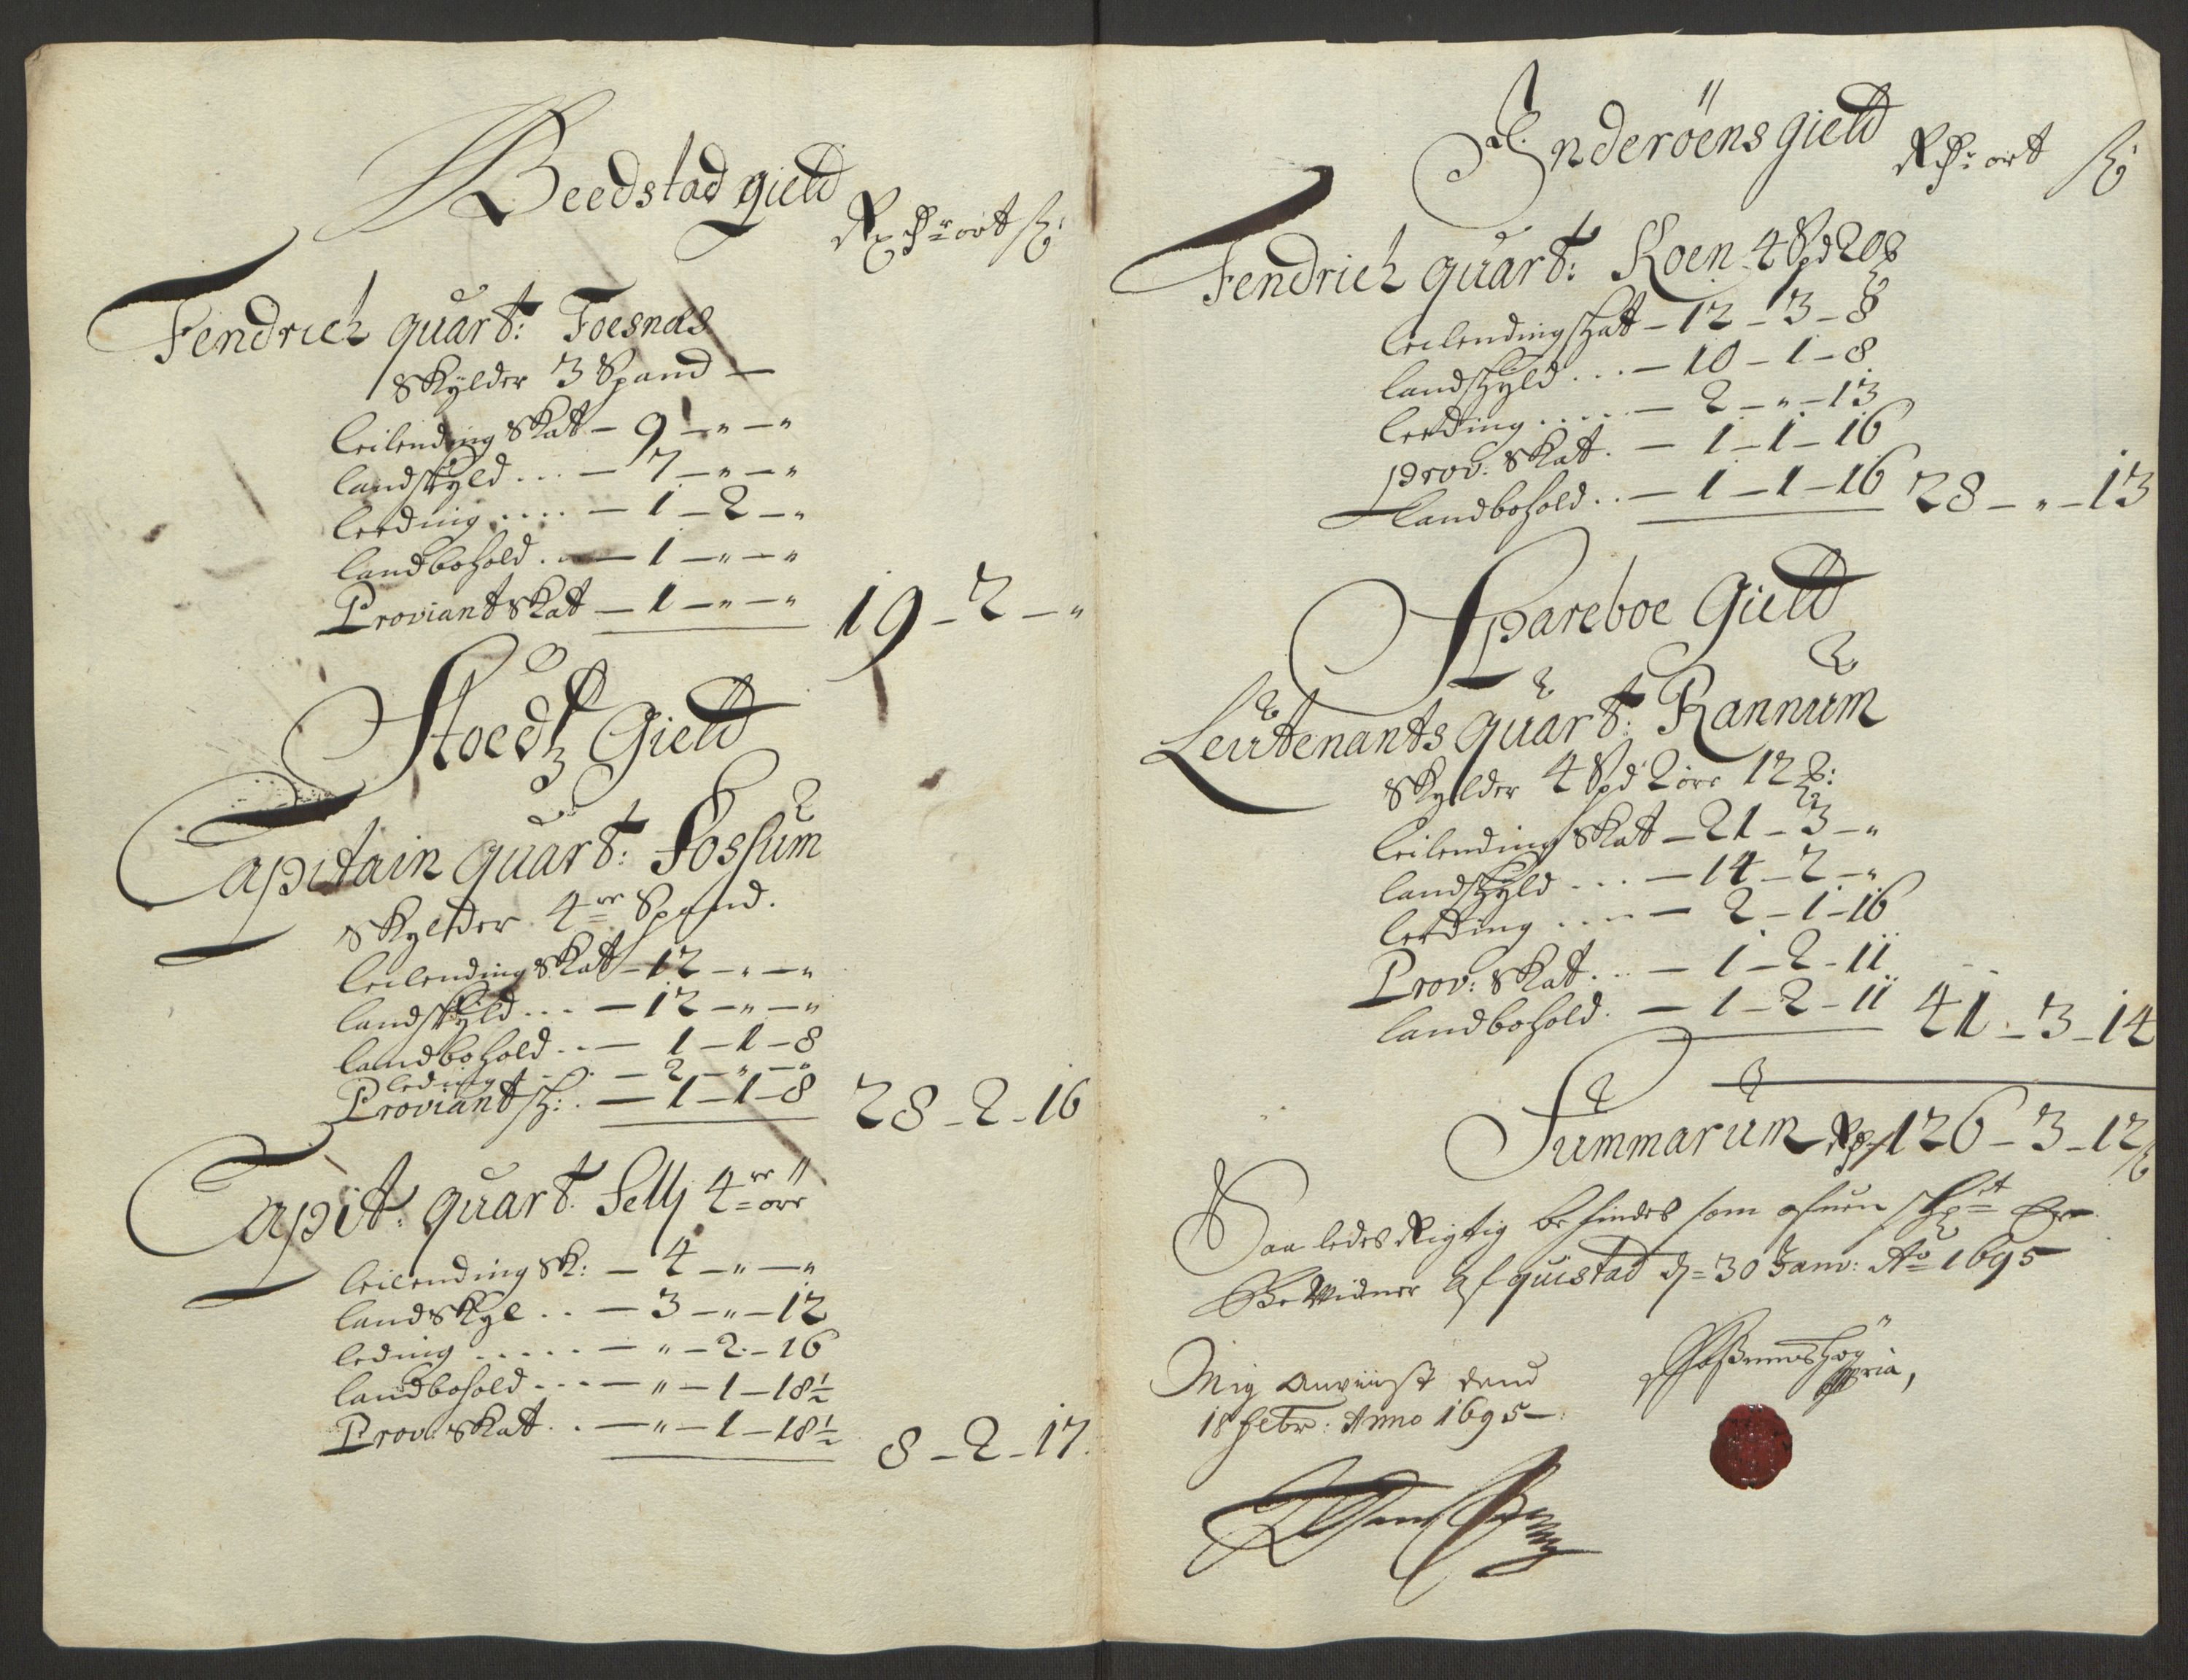 Beedstad gield
Rixdr ort ß
Fendrich quart: Foesnæs
Skylder 3 Spand —
leilending Skat — 9 — " — "
landskyld ... — 7 — " — "
leeding .... — 1 — 2 — "
landbohold . — 1 — " — "
Proviantskat — 1 — " — " 19 — 2 — "
Stoedz Gield
Capitain quart: Fossum
Skylder 4re Spand.
leilending Skat — 12 — " — "
landskyld ... — 12 — " — "
landbohold .. — 1 — 1 — 8
leding — 2 — " — "
Proviant sk: . — 1 — 1 — 8 28 — 2 — 16
Capit: quart: Selly 4re öre
leilending Sk: — 4 — " — "
landskyl .. — 3 — " — 12
leding ..... — " — 2 — 16
landbohold ... — " — 1 — 18½
Prov: Skat .. — " — 1 — 18½ 8 — 2 — 17.
Inderöens gield
Rdr: ort ß
Fendrich quart: Roen 4 Spd 20
leilendingskat — 12 — 3 — 8
landskyld ... — 10 — 1 — 8
leeding ..... — 2 — " — 13
prov: Skat . — 1 — 1 — 16
Landbohold .. — 1 — 1 — 16 28 — " — 13
Spareboe Gield
Leutenants quart: Rannum
Skylder 4 Spd 2 öre 12
leilending Skat — 21 — 3 — "
landskyld ... — 14 — 2 — "
leeding .... — 2 — 1 — 16
Prov: Skat ... — 1 — 2 — 11
landbohold . — 1 — 2 — 11 41 — 3 — 14
Summarum Rdr 126 — 3 — 12 ß
Saaledes Rigtig befindes som ofuen
Bewidner af quistad d= 30 Janv: Ao 1695
Mig anviist dend
18 Febr: Anno 1695 —
mpria,